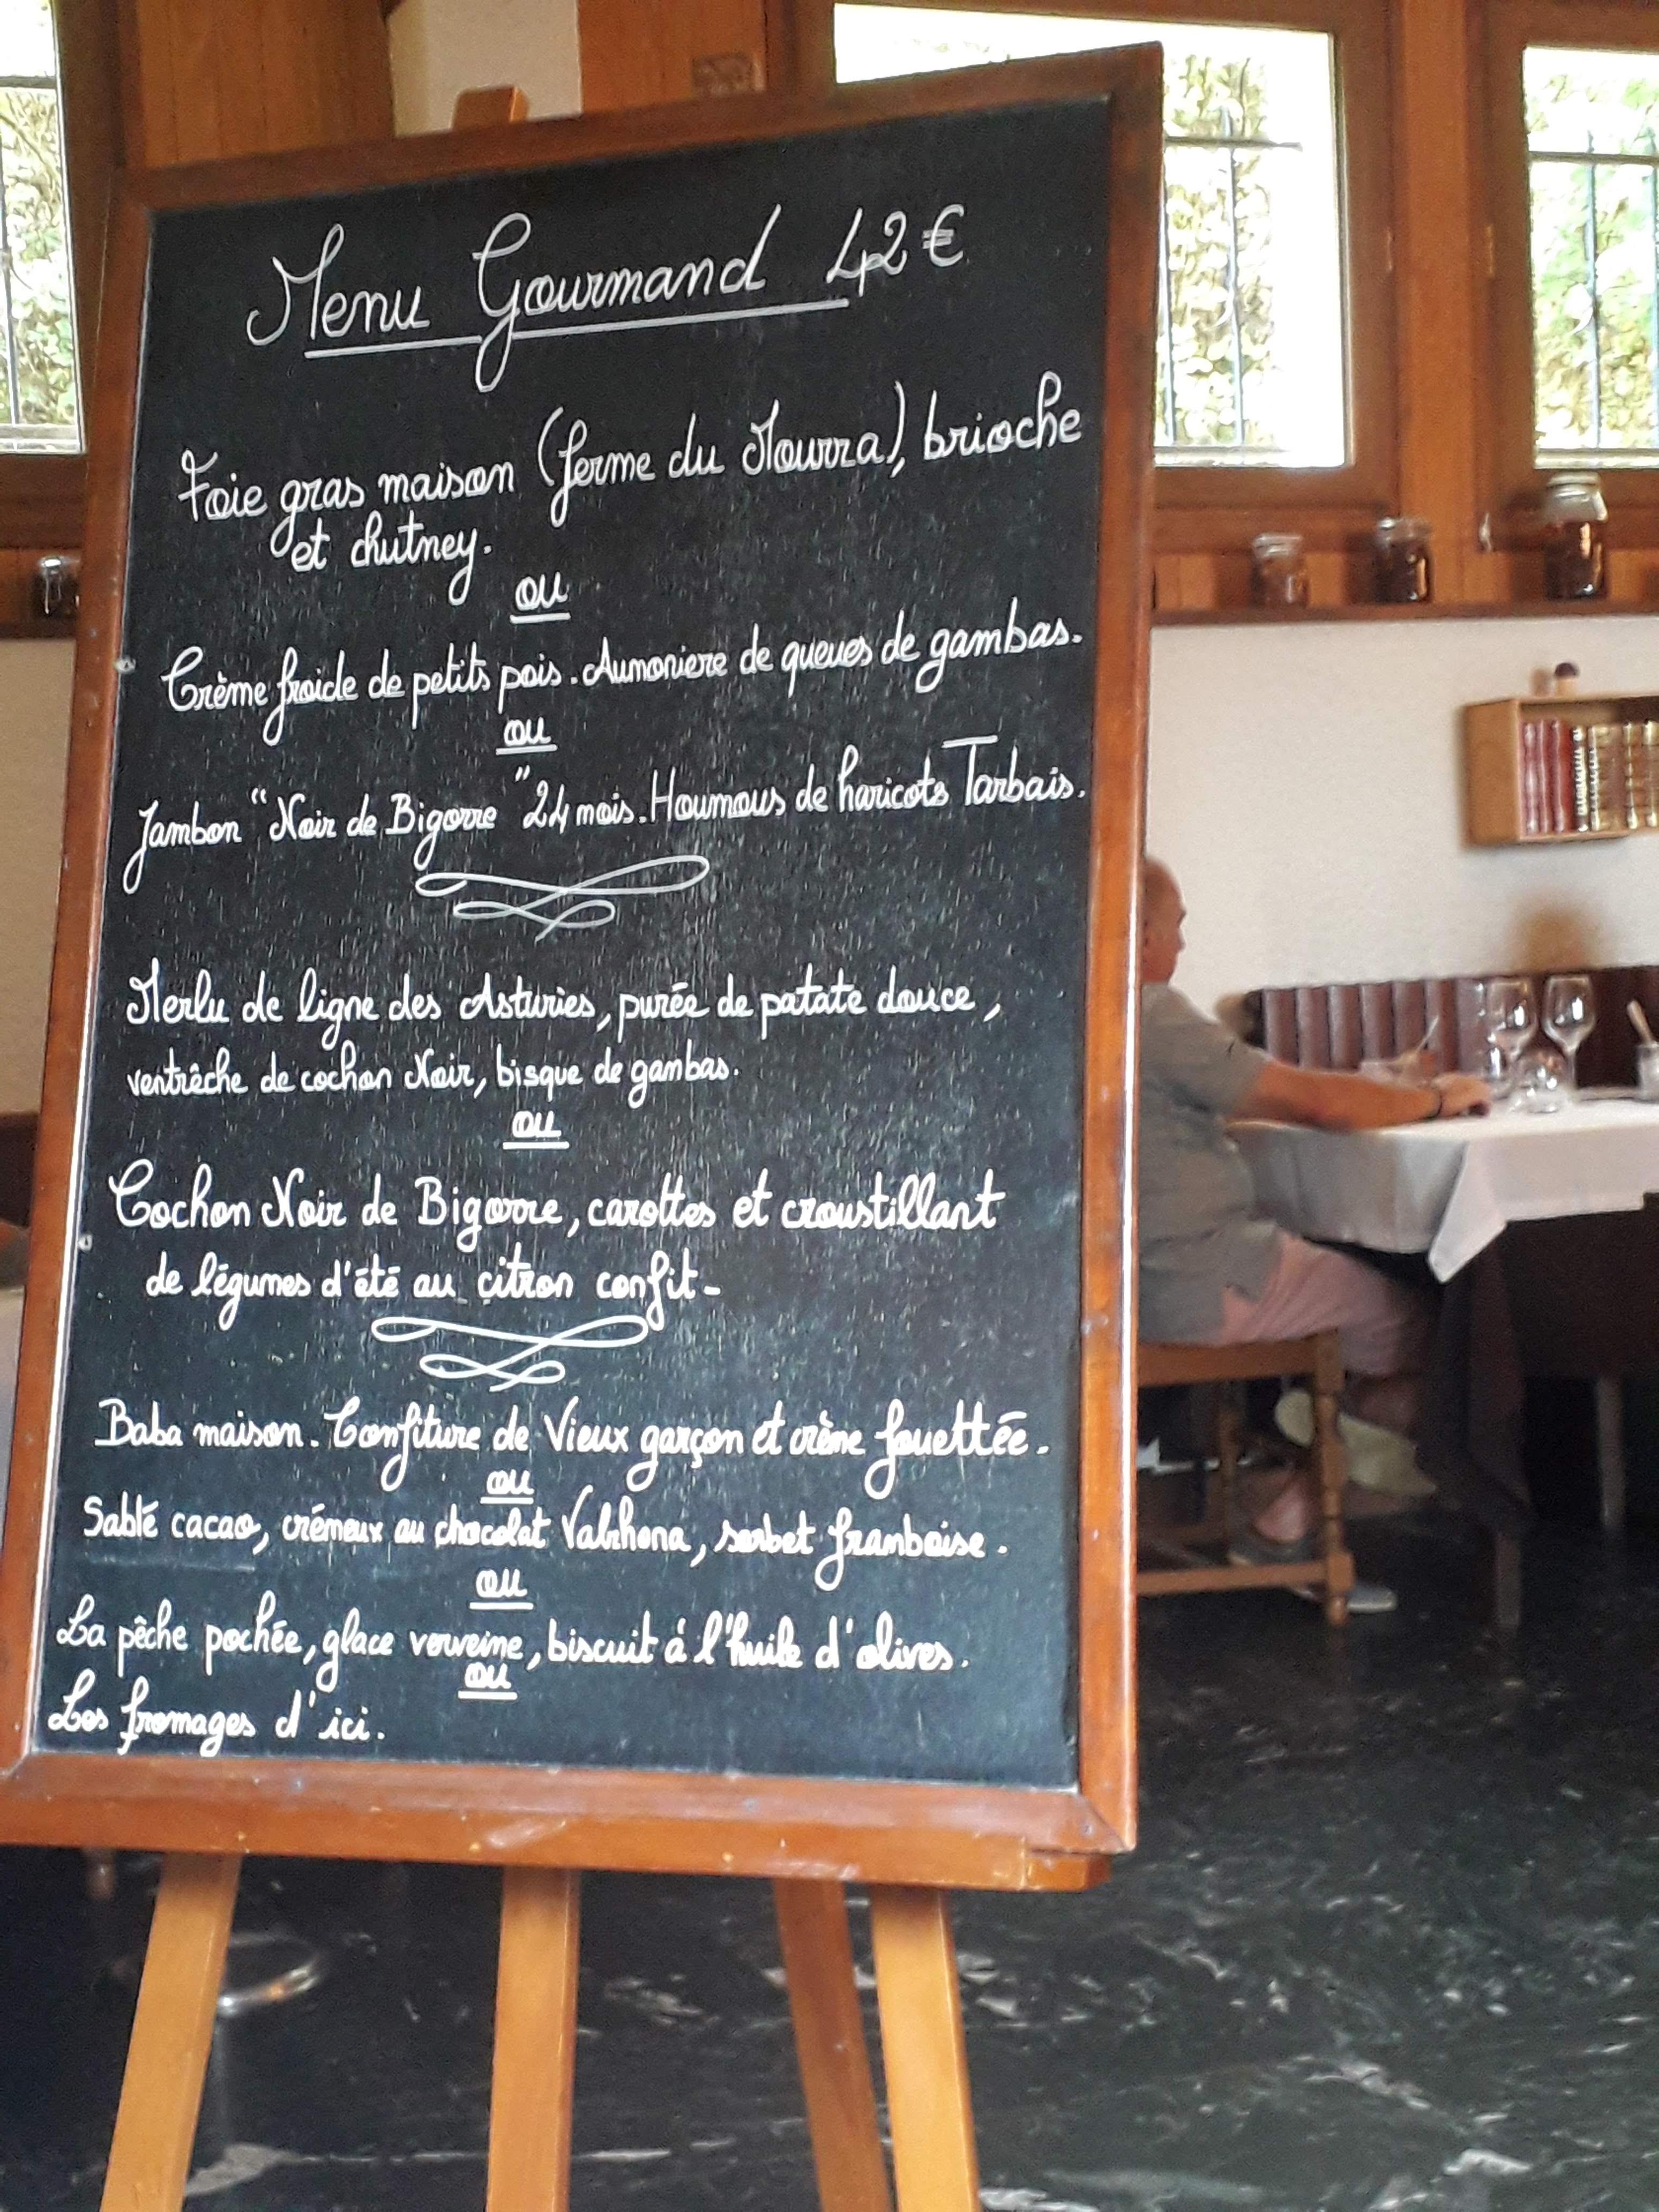 Menu Gourmand 42€
Foie gras maison (ferme du Mourra), brioche
et chutney.
ou
Crème froide de petits pois. Aumoniere de queues de gambas.
ou
Jambon "Noir de Bigorre" 24 mois. Houmous de haricots Tarbais.
Merlu de ligne des Asturies, purée de patate douce,
ventrêche de cochon Noir, bisque de gambas.
ou
Cochon Noir de Bigorre, carottes et croustillant
de légumes d'été au citron confit-
Baba maison. Confiture de Vieux garçon et crème fouettée.
ou
Sablé cacao, crémeux au chocolat Valrhona, sorbet framboise.
ou
La pêche pochée, glace verveine, biscuit á l'huile d'olives.
ou
Les fromages d'ici.